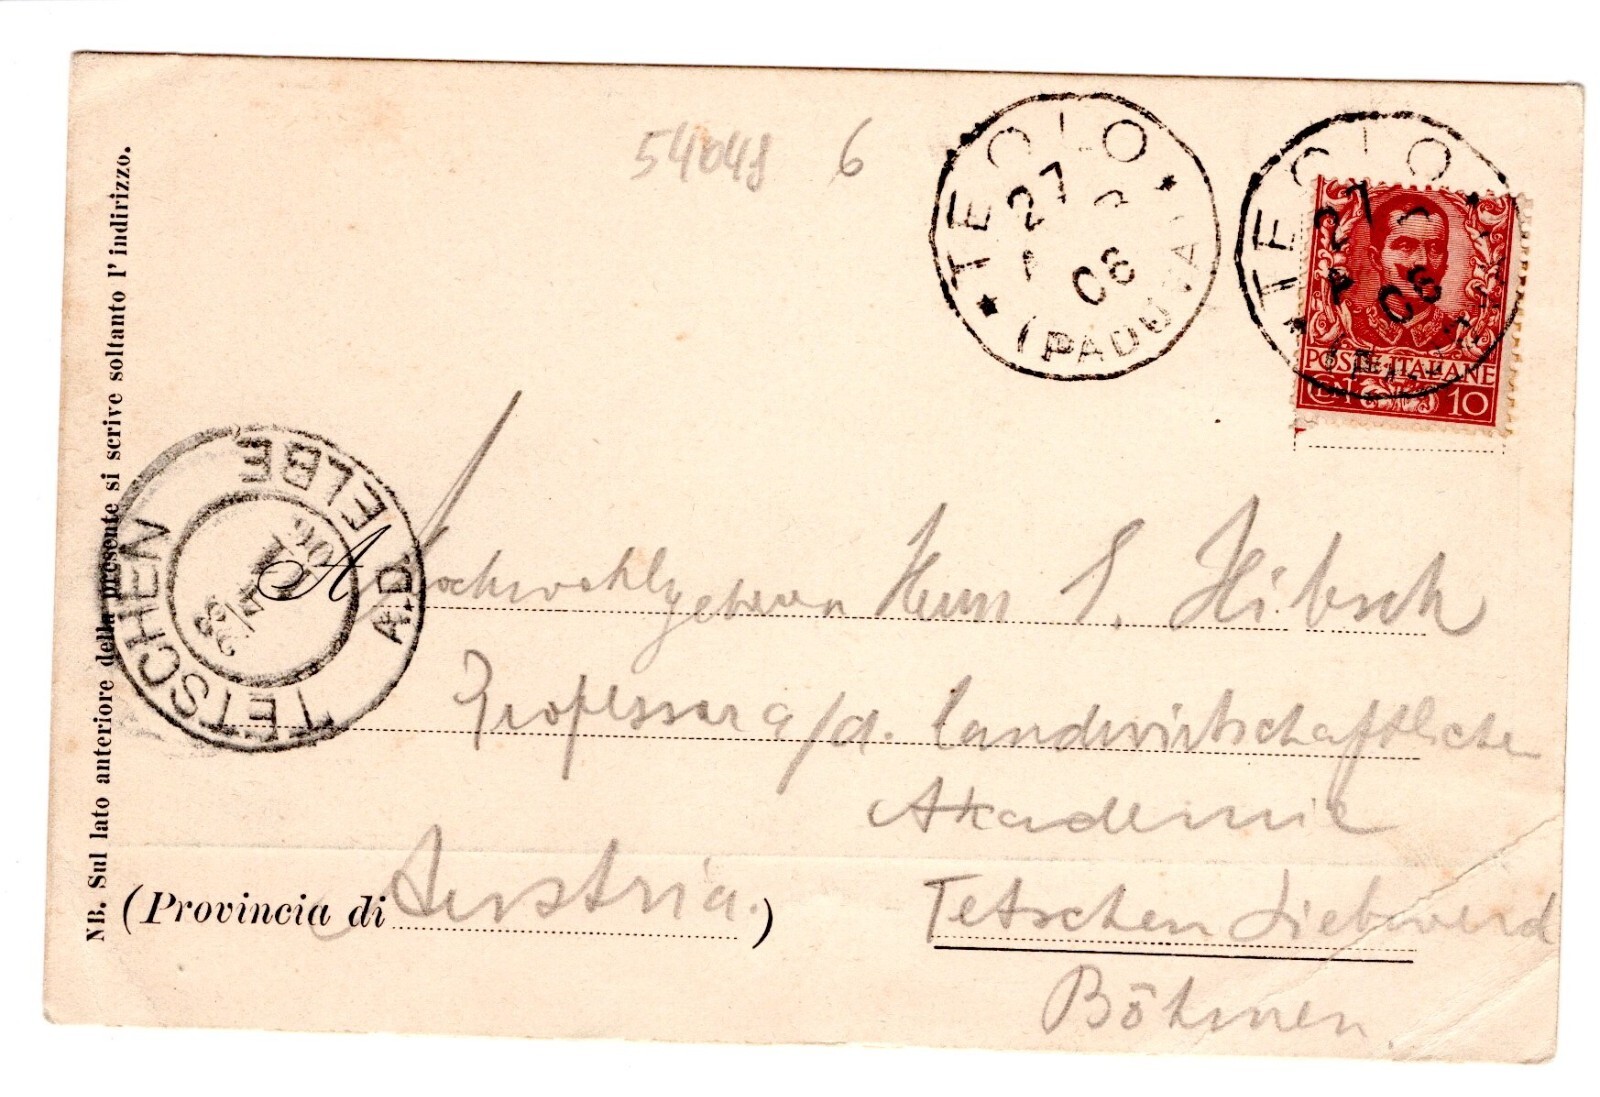 54048 6
TEOLO
27
06
(PADOVA)
TEOLO
27
06
POSTE ITALIANE
CENT 10
NB. Sul lato anteriore della presente si scrive soltanto l'indirizzo.
TETSCHEN A.D. ELBE
06
A
Hochwohlgeboren Herrn S. Hibsch
Professor a/d. landwirtschaftliche
Akademie
(Provincia di Austria.)
Tetschen Liebwerd
Böhmen.